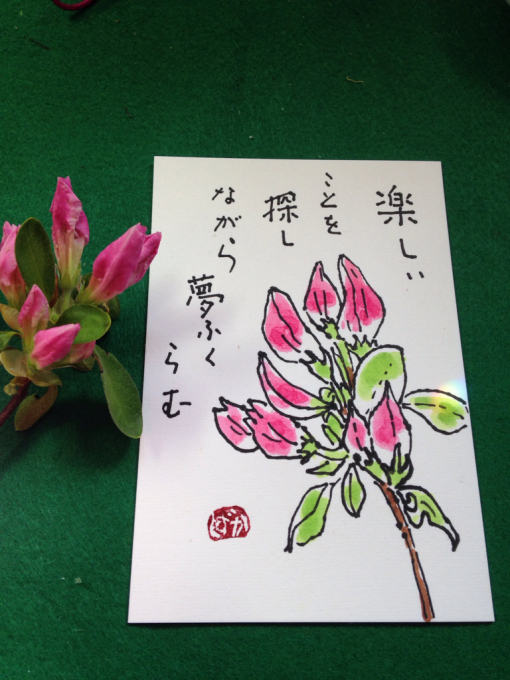 楽しい
ことを
探し
ながら
夢ふく
らむ